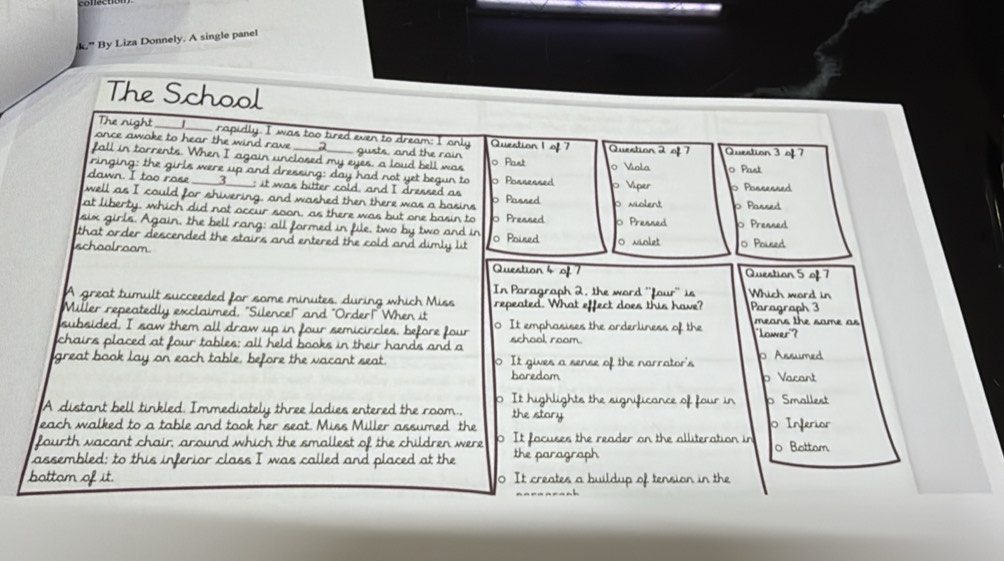 collection).
k." By Liza Donnely. A single panel
The School
The night 1 rapidly. I was too tired even to dream: I only
once awoke to hear the wind rave 2 gusts, and the rain
fall in torrents. When I again unclosed my eyes, a loud bell was
ringing; the girls were up and dressing; day had not yet begun to
dawn. I too rose 3 ; it was bitter cold, and I dressed as
well as I could for shivering, and washed then there was a basins
at liberty, which did not occur soon, as there was but one basin to
six girls. Again, the bell rang: all formed in file, two by two and in
that order descended the stairs and entered the cold and dimly lit
schoolroom.
A great tumult succeeded for some minutes, during which Miss
Miller repeatedly exclaimed, "Silence!" and "Order!" When it
subsided, I saw them all draw up in four semicircles, before four
chairs placed at four tables; all held books in their hands and a
great book lay on each table, before the vacant seat.
A distant bell tinkled. Immediately three ladies entered the room.,
each walked to a table and took her seat. Miss Miller assumed the
fourth vacant chair, around which the smallest of the children were
assembled; to this inferior class I was called and placed at the
bottom of it.
Question 1 of 7
o Past
o Possessed
o Passed
o Pressed
o Poised
Question 2 of 7
o Viola
o Viper
o violent
o Pressed
o violet
Question 3 of 7
o Past
o Possessed
o Passed
o Pressed
o Poised
Question 4 of 7
In Paragraph 2, the word "four" is
repeated. What effect does this have?
o It emphasises the orderliness of the
school room.
o It gives a sense of the narrator's
boredom
o It highlights the significance of four in
the story
o It focuses the reader on the alliteration in
the paragraph
o It creates a buildup of tension in the
Question 5 of 7
Which word in
Paragraph 3
means the same as
'Lower'?
o Assumed
o Vacant
o Smallest
o Inferior
o Bottom